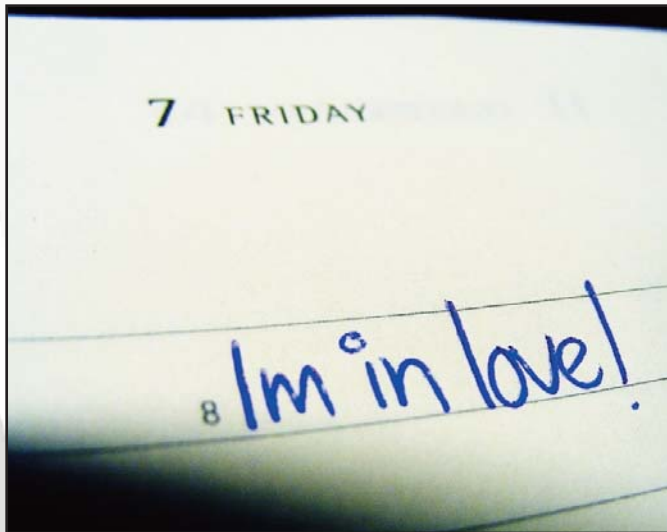 7 FRIDAY
8 Im in love!